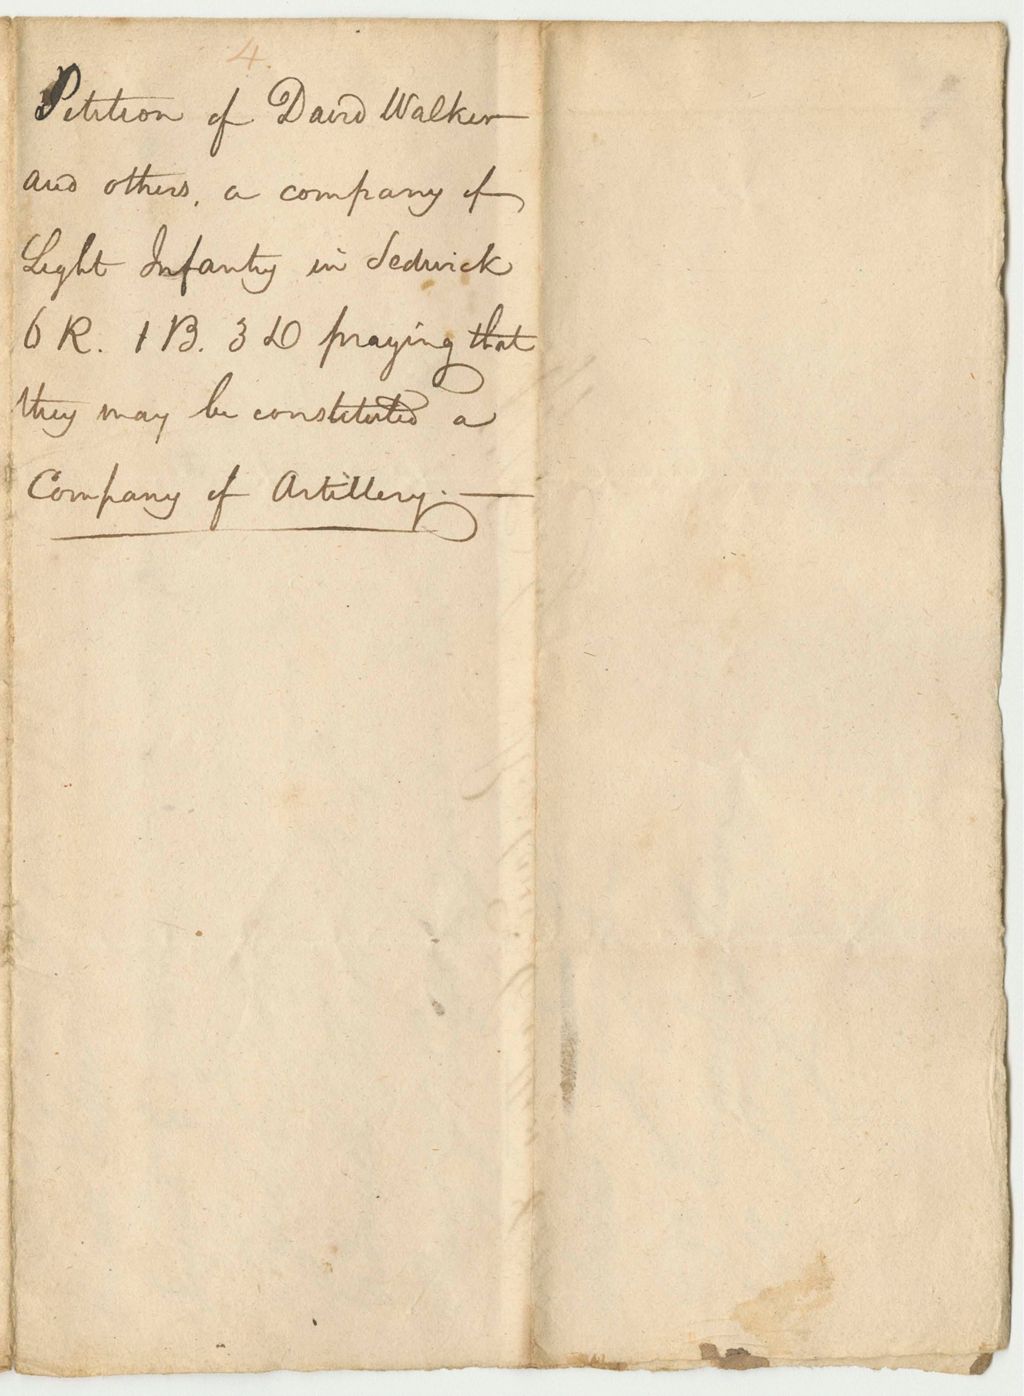 4.
Petition of David Walker
and others, a company of
Light Infantry in Sedwick
6 R. 1 B. 3 D praying that
they may be constituted a
Company of Artillery. —